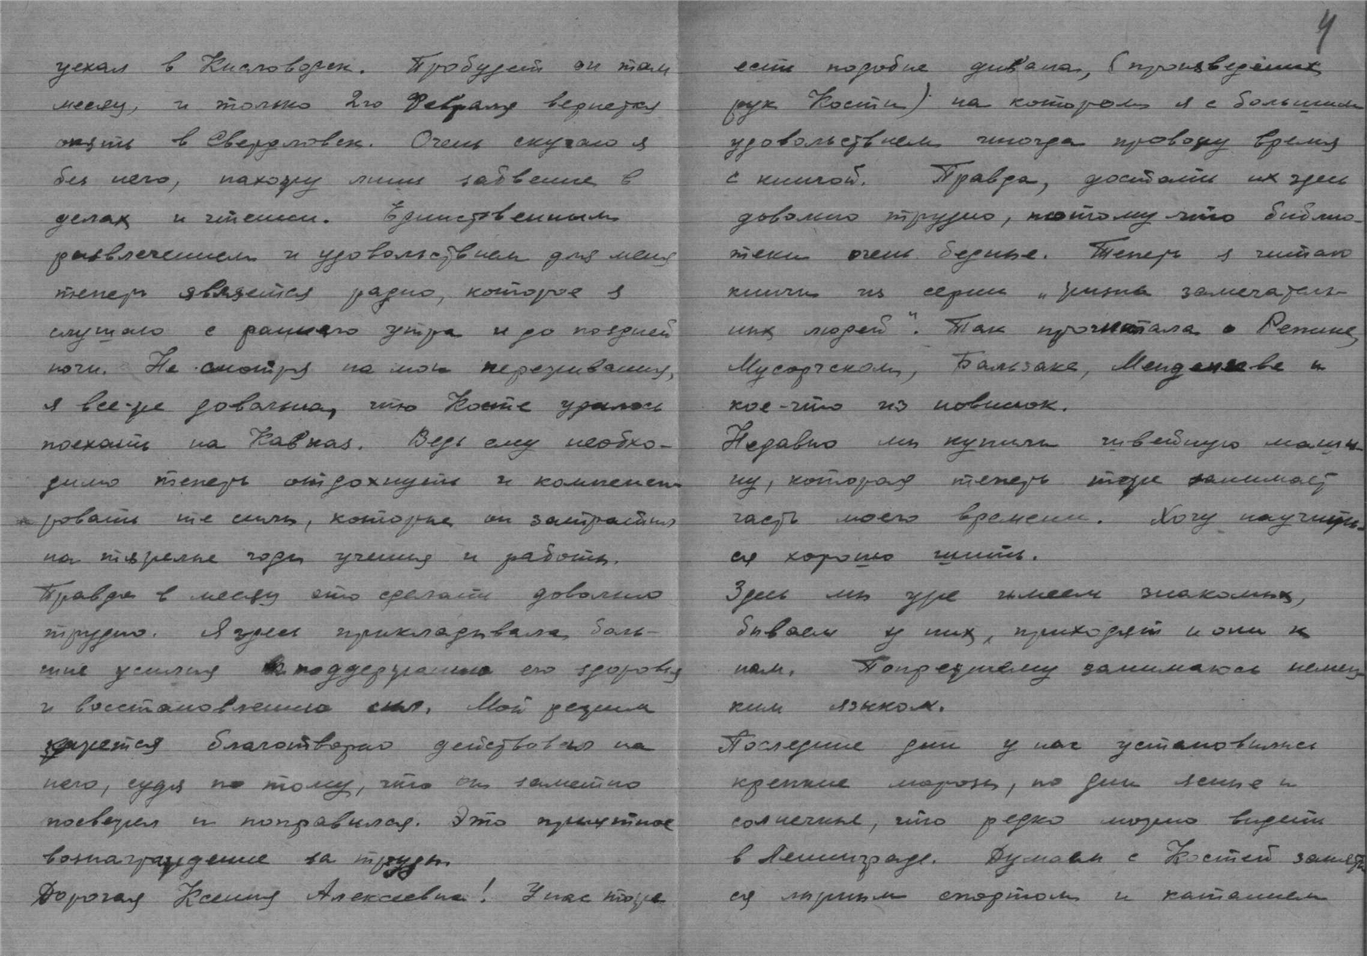 уехал в Кисловодск. Пробудет он там
месяц, и только 2го Февраля вернется
опять в Свердловск. Очень скучаю я
без него, нахожу лишь забвение в
делах и чтении. Единственным
развлечением и удовольствием для меня
теперь является радио, которое я
слушаю с раннего утра и до поздней
ночи. Не смотря на мои переживания,
я все-же довольна, что Косте удалось
поехать на Кавказ. Ведь ему необхо-
димо теперь отдохнуть и компенси
ровать те силы, которые он затратил
на тяжелые годы учения и работы.
Правда в месяц это сделать довольно
трудно. Я здесь прикладывала боль-
шие усилия к поддержанию его здоровья
и восстановлению сил. Мой режим
кажется благотворно действовал на
него, судя по тому, что он заметно
посвежел и поправился. Это приятное
вознаграждение за труды.
Дорогая Ксения Алексеевна! У нас тоже
4
есть подобие дивана, (произведение
рук Кости) на котором я с большим
удовольствием иногда провожу время
с книгой. Правда, достать их здесь
довольно трудно, потому что библио-
теки очень бедные. Теперь я читаю
книги из серии „Жизнь замечатель-
ных людей". Так прочитала о Репине,
Мусоргском, Бальзаке, Менделееве и
кое-что из новинок.
Недавно мы купили швейную маши-
ну, которая теперь тоже занимает
часть моего времени. Хочу научить-
ся хорошо шить.
Здесь мы уже имеем знакомых,
бываем у них, приходят и они к
нам. Попрежнему занимаюсь немец-
ким языком.
Последние дни у нас установились
крепкие морозы, но дни ясные и
солнечные, что редко можно видеть
в Ленинграде. Думаем с Костей занять
ся лыжным спортом и катанием